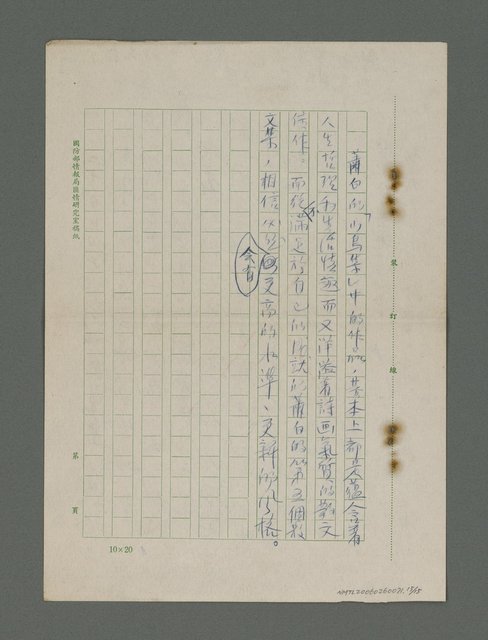 蕭白的「山鳥集」中的作品，基本上都是蘊含著
人生哲理和生活情趣而又洋溢着詩画氣質的散文
佳作。而從不滿足於自己的成就的蕭白的第五個散
文集，相信必然會有更高的水準、更新的風格。
國防部情報局匪情研究室稿紙
裝 訂 線
第 頁
10×20
NMTL20060260071, 15/15